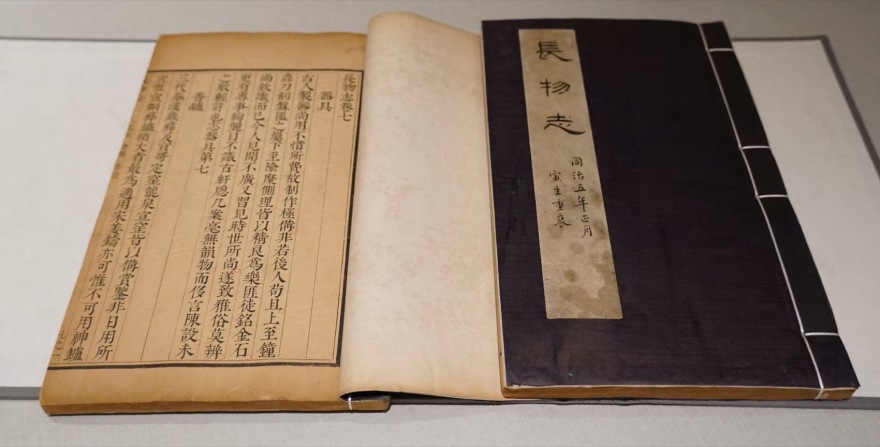 長物志
同治五年正月
寅生重裝
長物志卷七
器具
古人製器尚用不惜所費故制作極備非若後人苟且上至鐘
鼎刀劍盤匜之屬下至隃糜側理皆以精良為樂匪徒銘金石
尚欵識而已今人見聞不廣又習見時世所尚遂致雅俗莫辨
更有專事絢麗目不識古軒牕几案毫無韻物而侈言陳設未
之敢輕許也志器具第七
香鑪
三代秦漢鼎彝及官哥定窰龍泉宣窰皆以備賞鑒非日用所
宜惟宣銅彝鑪稍大者最為適用宋姜鑄亦可惟不可用神鑪